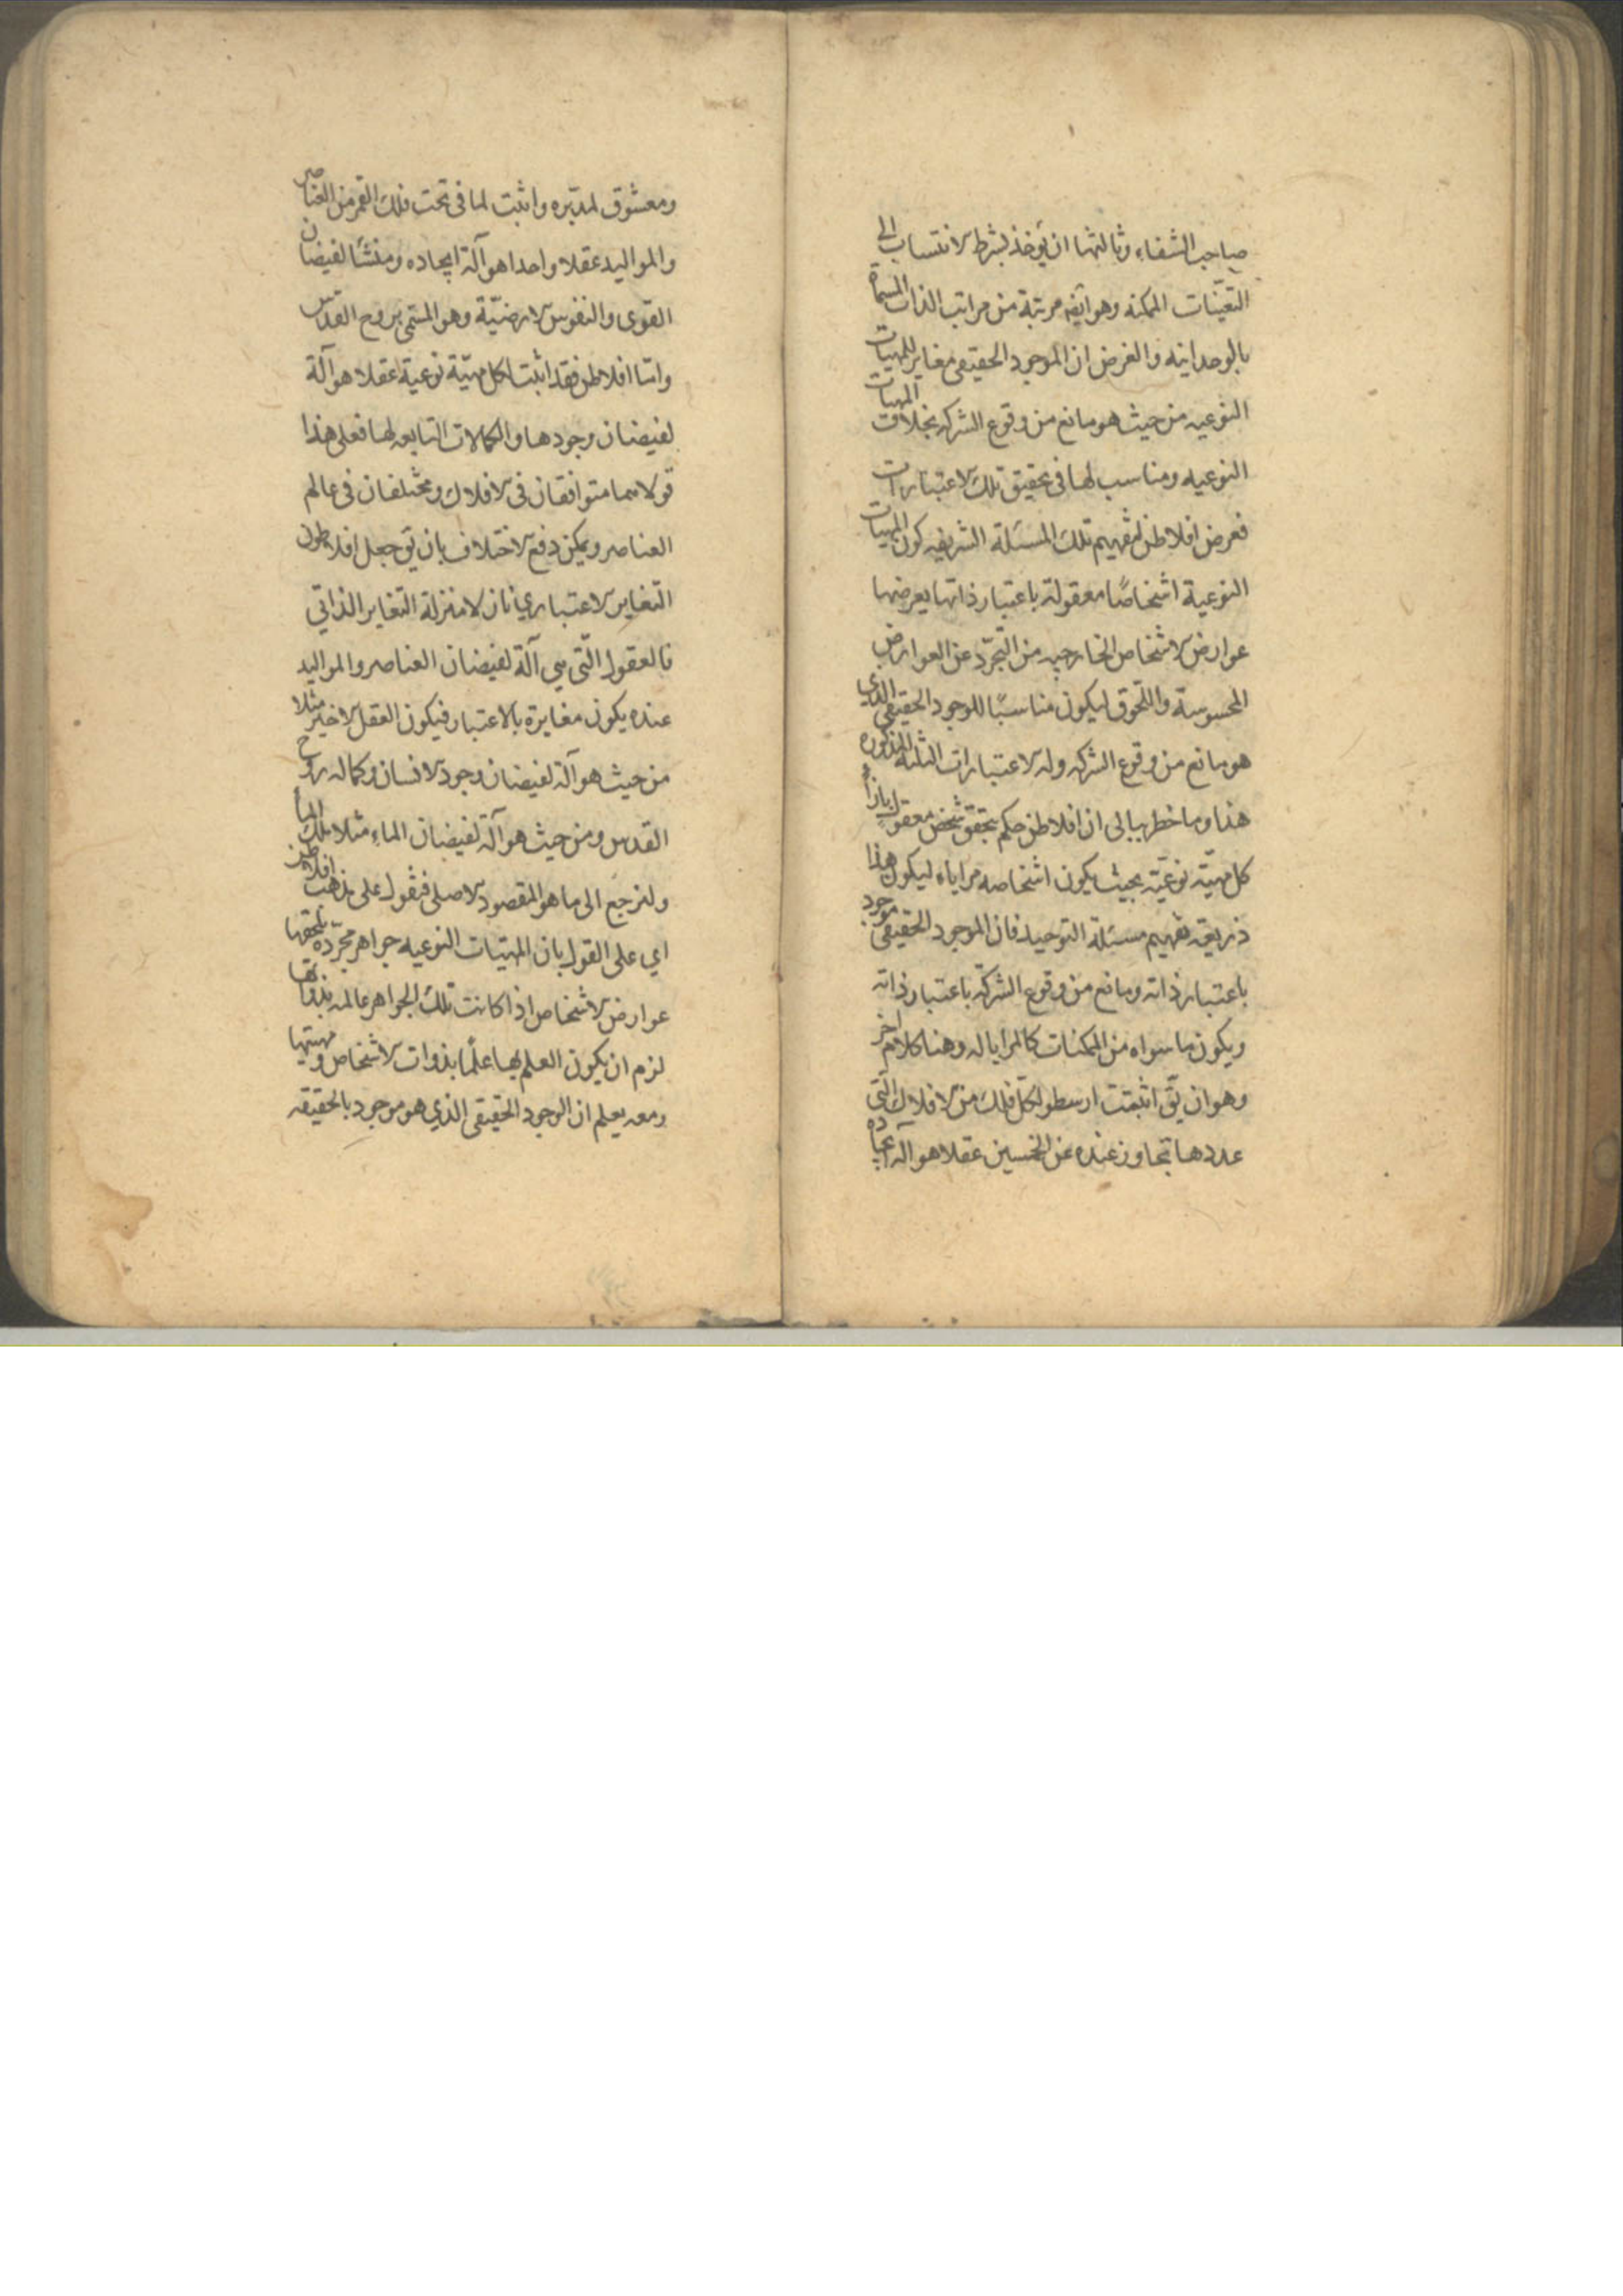 صاحب الشفاء وثالثتها ان يؤخذ بشرط الانتساب الى
التعيّنات الممكنة وهو ايضه مرتبة من مراتب الذات المسماة
بالوحدانيه والغرض ان الموجود الحقيقى مغاير للمهيات
النوعيه من حيث هو مانع من وقوع الشركه بخلاف المهيات
النوعيه ومناسب لها فى تحقيق تلك الاعتبارات
فعرض افلاطن لتفهيم تلك المسئلة الشريفه كون المهيات
النوعية اشخاصًا معقولة باعتبار ذاتها يعرضها
عوارض الاشخاص الخارجيه من التجرّد عن العوارض
المحسوسة واللحوق ليكون مناسبًا للوجود الحقيقى الذي
هو مانع من وقوع الشركه وله الاعتبارات الثلثه المذكوره
هذا وما خطر ببالى ان افلاطن حكم بتحقق شخص معقول بازاء
كل مهيّه نوعيّه بحيث يكون اشخاصه مراياء ليكون هذا
ذريعه تفهيم مسئلة التوحيد فان الموجود الحقيقى موجود
باعتبار ذاته ومانع من وقوع الشركة باعتبار ذاته
ويكون ما سواه من الممكنات كالمرايا له وهنا كلام اخر
وهو ان يقّ اثبتت ارسطو لكلّ فلك من الافلاك الّتى
عددها تجاوز عنده عن الخمسين عقلا هو آلة ايجاده
ومعشوق لمدبّره واثبت لما فى تحت فلك القمر من العناصر
والمواليد عقلا واحدا هو آلة ايجاده ومنشأ لفيضان
القوى والنفوس الارضيّة وهو المسمّى بروح القدس
وامّا افلاطن فقد اثبت لكل مهيّة نوعية عقلا هو آلة
لفيضان وجودها والكمالات التابعه لها فعلى هذا
قولاهما متوافقان فى الافلاك ومختلفان فى عالم
العناصر ويمكن دفع الاختلاف بان يقّ جعل افلاطون
التغاير الاعتباري نازلا منزلة التغاير الذاتي
فالعقول الّتى هي آلة لفيضان العناصر والمواليد
عنده يكون مغايرة بالاعتبار فيكون العقل الاخير مثلا
من حيث هو آلة لفيضان وجود الانسان وكماله روح
القدس ومن حيث هو آلة لفيضان الماء مثلا ملك الماء
ولنرجع الى ما هو المقصود الاصلى فنقول على مذهب افلاطن
اي على القول بان المهيّات النوعيه جواهر مجرّده تلحقها
عوارض الاشخاص اذا كانت تلك الجواهر عالمه بذواتها
لزم ان يكون العلم بها علمًا بذوات الاشخاص ومهيتها
ومعه يعلم ان الوجود الحقيقى الذي هو موجود بالحقيقه